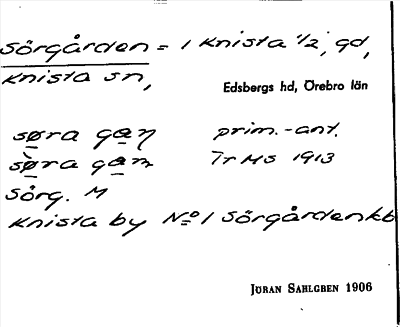 Sörgården = 1 Knista 1/2, gd,
Knista sn,
Edsbergs hd, Örebro län
søra gan prim.-ant.
søra gam Tr MS 1913
Sörg. M
Knista by No 1 Sörgården kb
JÖRAN SAHLGREN 1906